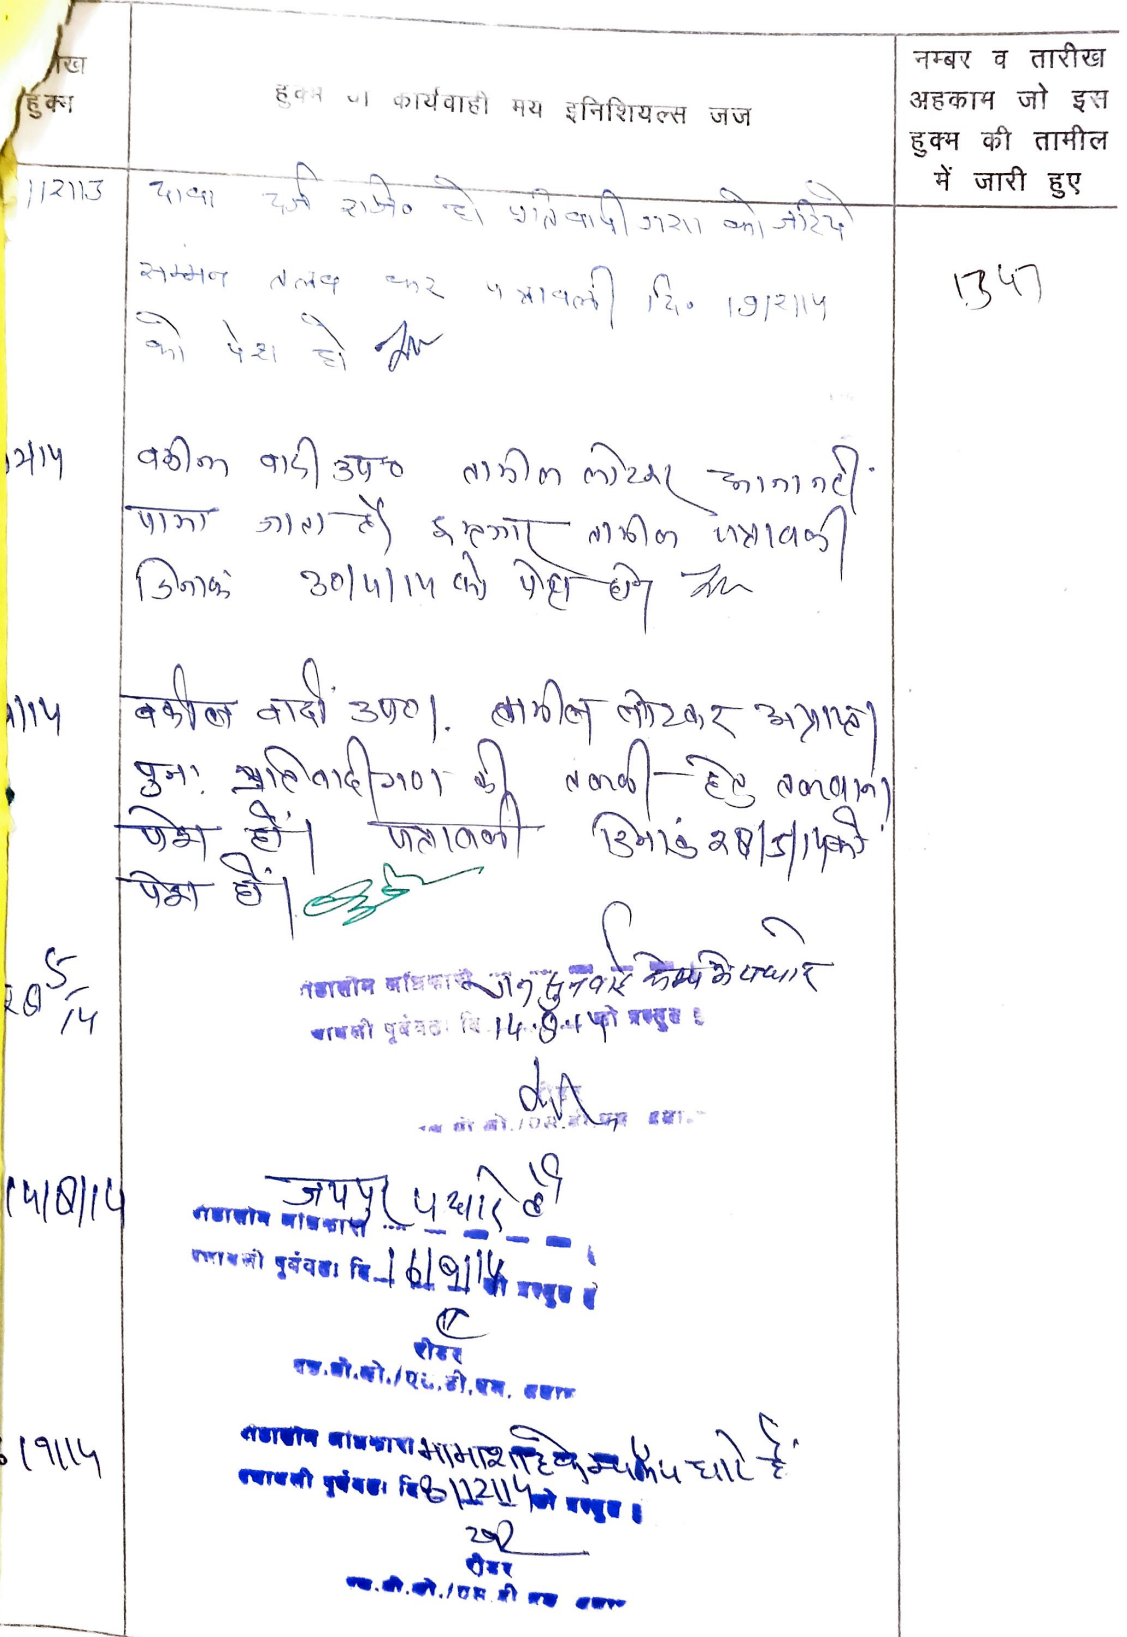 हुक्म
हुक्म या कार्यवाही मय इनिशियल्स जज
नम्बर व तारीख
अहकाम जो इस
हुक्म की तामील
में जारी हुए
दावा दर्ज रजि० हो प्रतिवादीगण को जरिये
सम्मन तलब कर पत्रावली दि० 19/2/14
को पेश हो
1347
2/14 वकील वादी उप० तामील लौटकर आना नहीं
पाया जाता है। इन्तजार तामील पत्रावली
दिनांक 30/4/14 को पेश हो।
/14 वकील वादी उप०। तामील लौटकर अप्राप्त।
पुनः प्रतिवादीगण की तलबी हेतु तलबाना
पेश हों। पत्रावली दिनांक 28/5/14 को
पेश हों।
28/5/14
पीठासीन अधिकारी जन सुनवाई कैम्प में पधारे
पत्रावली पूर्ववतः दि. 14.8.14 को प्रस्तुत हो
14/8/14
जयपुर पधारे है
पीठासीन अधिकारी
पत्रावली पूर्ववतः दि. 16/9/14 को प्रस्तुत हो
रीडर
एस.बी.ओ./एस.डी.एम.
/9/14
पीठासीन अधिकारी भामाशाह कैम्प में पधारे हैं
पत्रावली पूर्ववतः दि. 8/12/14 को प्रस्तुत हो
रीडर